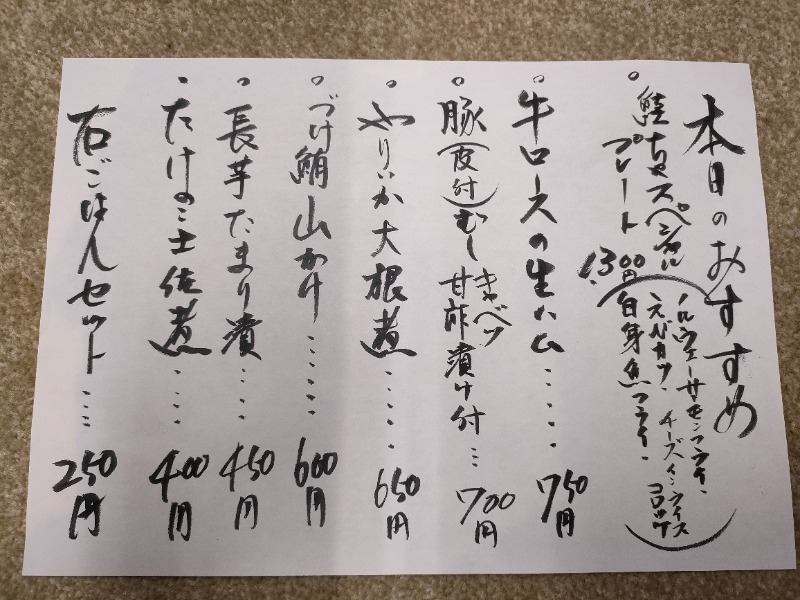 本日のおすすめ
鮭ちゃスペシャル
プレート 1,300円
(ノルウェーサーモンフライ・
えびカツ・チーズインライス
コロッケ
白身魚フライ・)
牛ロースの生ハム・・・・750円
豚(皮付)むし キャベツ
甘酢漬け付・・・700円
やりいか大根煮・・・・650円
づけ鮪山かけ・・・・・600円
長芋たまり漬・・・・450円
たけのこ土佐煮・・・・400円
右ごはんセット・・・250円